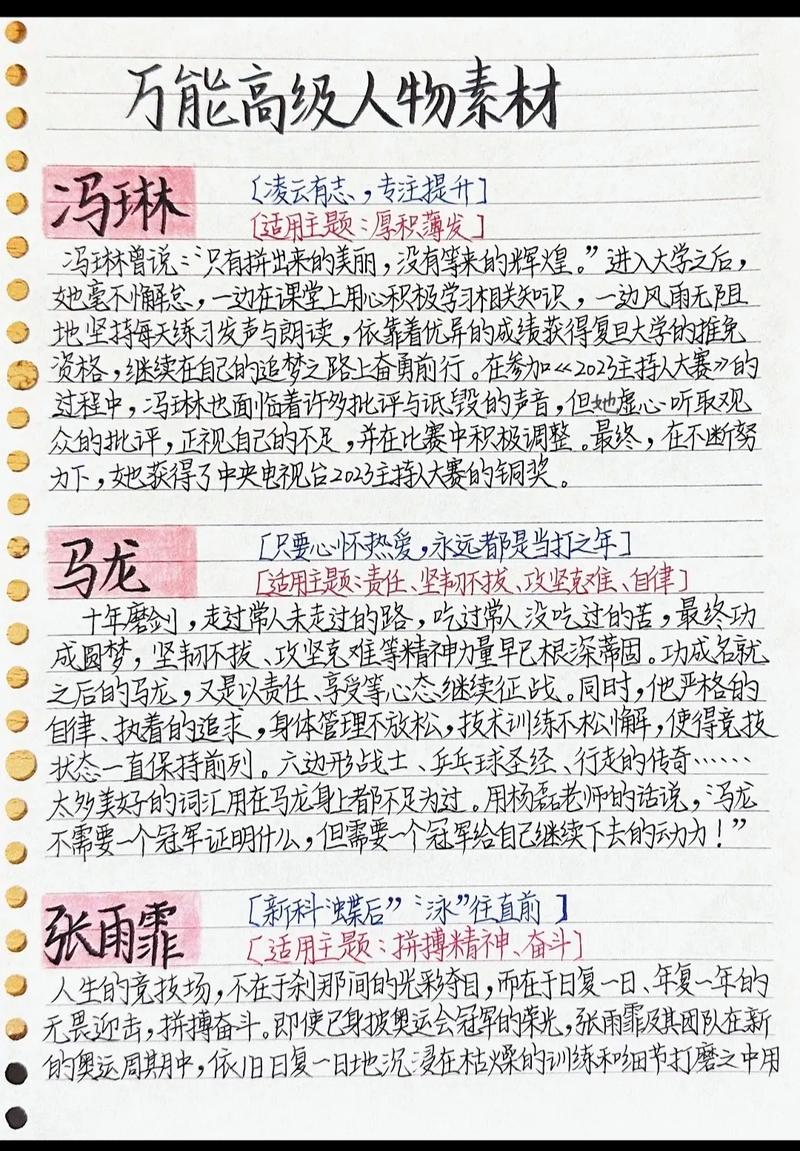 万能高级人物素材
冯琳 [凌云有志，专注提升]
[适用主题：厚积薄发]
冯琳曾说：“只有拼出来的美丽，没有等来的辉煌。”进入大学之后，
她毫不懈怠，一边在课堂上用心积极学习相关知识，一边风雨无阻
地坚持每天练习发声与朗读，依靠着优异的成绩获得复旦大学的推免
资格，继续在自己的追梦之路上奋勇前行。在参加《2023主持人大赛》的
过程中，冯琳也面临着许多批评与诋毁的声音，但她虚心听取观
众的批评，正视自己的不足，并在比赛中积极调整。最终，在不断努
力下，她获得了中央电视台2023主持人大赛的铜奖。
马龙 [只要心怀热爱，永远都是当打之年]
[适用主题：责任、坚韧不拔、攻坚克难、自律]
十年磨剑，走过常人未走过的路，吃过常人没吃过的苦，最终功
成圆梦，坚韧不拔、攻坚克难等精神力量早已根深蒂固。功成名就
之后的马龙，又是以责任、享受等心态继续征战。同时，他严格的
自律、执着的追求，身体管理不放松，技术训练不松懈，使得竞技
状态一直保持前列。六边形战士、乒乓球圣经、行走的传奇……
太多美好的词汇用在马龙身上都不足为过。用杨磊老师的话说，“马龙
不需要一个冠军证明什么，但需要一个冠军给自己继续下去的动力！”
张雨霏 [新科“蝶后”“泳”往直前]
[适用主题：拼搏精神、奋斗]
人生的竞技场，不在于刹那间的光彩夺目，而在于日复一日、年复一年的
无畏迎击，拼搏奋斗。即使已身披奥运会冠军的荣光，张雨霏及其团队在新
的奥运周期中，依旧日复一日地沉浸在枯燥的训练和细节打磨之中用